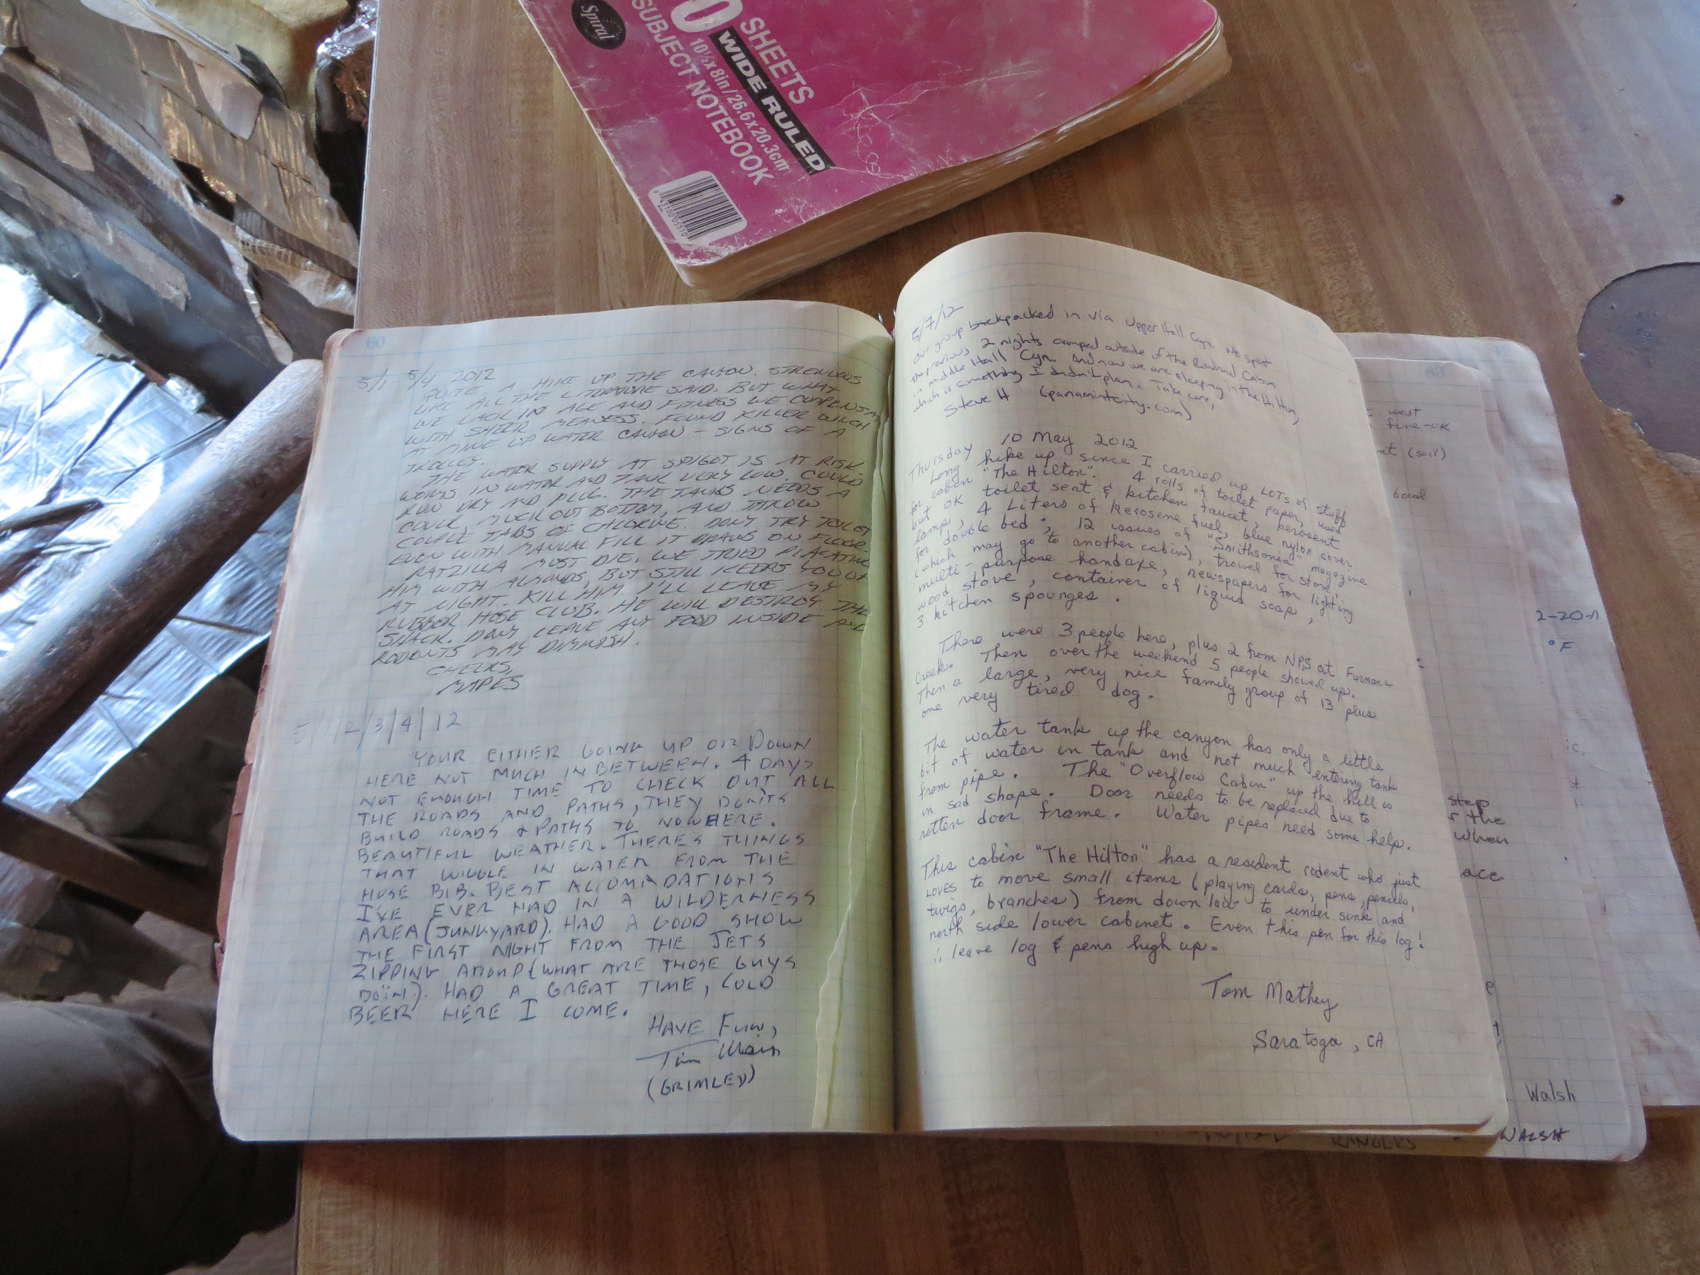 Spiral
0 SHEETS
WIDE RULED
10½ x 8in / 26.6 x 20.3cm
SUBJECT NOTEBOOK
60
5/1 5/4 2012
QUITE A HIKE UP THE CANYON. STRENUOUS
LIKE ALL THE LITERATURE SAID. BUT WHAT
WE LACK IN AGE AND FITNESS WE COMPENSATE
WITH SHEER MEANESS. FOUND KILLER
AT MINE UP WATER CANYON - SIGNS OF A
THE WATER SUPPLY AT SPIGOT IS AT RISK
WORMS IN WATER AND TANK VERY LOW COULD
RUN DRY AND PLUG. THE TANKS NEEDS A
COVER, MUCK OUT BOTTOM, AND THROW
COUPLE TABS OF CHLORINE. DON'T TRY TOILET
EVEN WITH MANUAL FILL IT DRAINS ON FLOOR.
RATZILLA MUST DIE. WE TRIED PLACATING
HIM WITH ALMONDS, BUT STILL KEEPS YOU UP
AT NIGHT. KILL HIM I'LL LEAVE MY
RUBBER HOSE CLUB. HE WILL DESTROY THE
SHACK. DONT LEAVE ANY FOOD INSIDE AND
RODENTS MAY DIMINISH.
CHEERS
MAPES
2/3/4/12
YOUR EITHER GOING UP OR DOWN
HERE NOT MUCH IN BETWEEN. 4 DAYS
NOT ENOUGH TIME TO CHECK OUT ALL
THE ROADS AND PATHS, THEY DON'TS
BUILD ROADS & PATHS TO NOWHERE.
BEAUTIFUL WEATHER. THERES THINGS
THAT WIGGLE IN WATER FROM THE
HOSE BIB. BEST ACCOMIDATIONS
I'VE EVER HAD IN A WILDERNESS
AREA (JUNKYARD). HAD A GOOD SHOW
THE FIRST NIGHT FROM THE JETS
ZIPPING AROUND (WHAT ARE THOSE GUYS
DOIN). HAD A GREAT TIME, COLD
BEER HERE I COME.
HAVE FUN,
Tim
(GRIMLED)
5/7/12
Our group backpacked in via Upper Hall Cyn. We spent
the previous 2 nights camped outside of the Cabin
in middle Hall Cyn. And now we are sleeping in the Hilton,
which is something I didn't plan. Take care,
Steve H (panamintcity.com)
Thursday 10 May 2012
Long hike up since I carried up LOTS of stuff
for cabin "The Hilton". 4 rolls of toilet paper, used
but OK toilet seat & kitchen faucet, kerosene
lamp, 4 Liters of kerosene fuel, blue nylon cover
for double bed, 12 issues of "Smithsonian" magazine
(which may go to another cabin), trowel for stove,
multi-purpose handaxe, newspapers for lighting
wood stove, container of liquid soap,
3 kitchen spounges.
There were 3 people here, plus 2 from NPS at Furnace
Creek. Then over the weekend 5 people showed up.
Then a large, very nice family group of 13 plus
one very tired dog.
The water tank up the canyon has only a little
bit of water in tank and not much entering tank
from pipe. The "Overflow Cabin" up the hill is
in sad shape. Door needs to be replaced due to
rotten door frame. Water pipes need some help.
This cabin "The Hilton" has a resident rodent who just
LOVES to move small items (playing cards, pens, pencils,
twigs, branches) from down low to under sink and
north side lower cabinet. Even this pen for this log!
∴ leave log & pens high up.
Tom Mathey
Saratoga, CA
west
fire-ok
(soil)
2-20-11
°F
step
the
when
ace
Walsh
WALSH
RANGERS